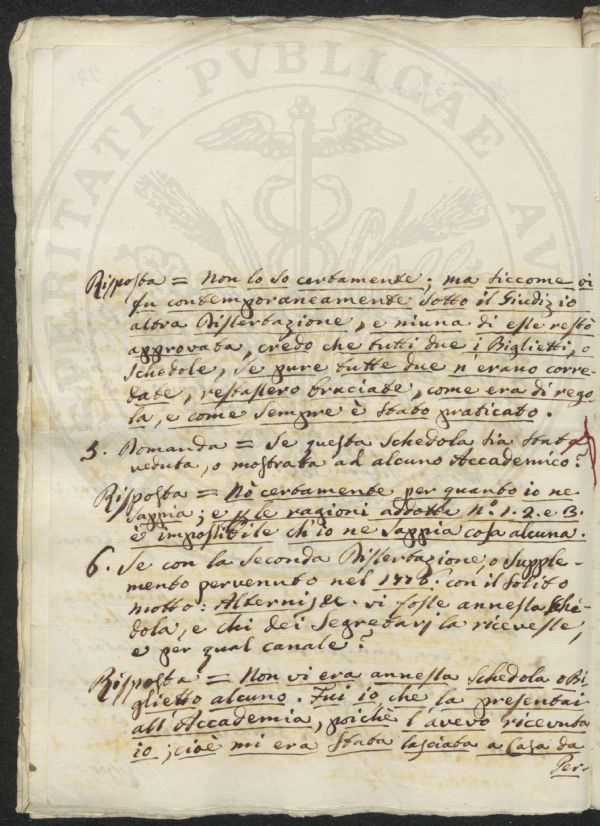 PVBLICAE
Risposta = Non lo so certamente; ma siccome vi
fu contemporaneamente sotto il Giudizio
altra Dissertazione, e niuna di esse restò
approvata, credo che tutti due i Biglietti, o
Schedole, se pure tutte due n'erano corre-
date, restassero braciate, come era di rego
la, e come sempre è stato praticato.
5. Domanda = Se questa Schedola sia stata
veduta, o mostrata ad alcuno Accademico?
Risposta = Nò certamente per quanto io ne
sappia; e p le ragioni addotte Nº 1. 2. e 3.
è impossibile ch'io ne sappia cosa alcuna.
6. Se con la Seconda Dissertazione, o Supple-
mento pervenuto nel 1778. con il solito
motto: Alternis, de. vi fosse annessa Sche-
dola, e chi dei Segretarj la ricevesse,
e per qual canale?
Risposta = Non vi era annessa Schedola o Bi
glietto alcuno. Fui io che la presentai
all'Accademia, poichè l'avevo ricevuta
io; cioè mi era stata lasciata a Casa da
Per-